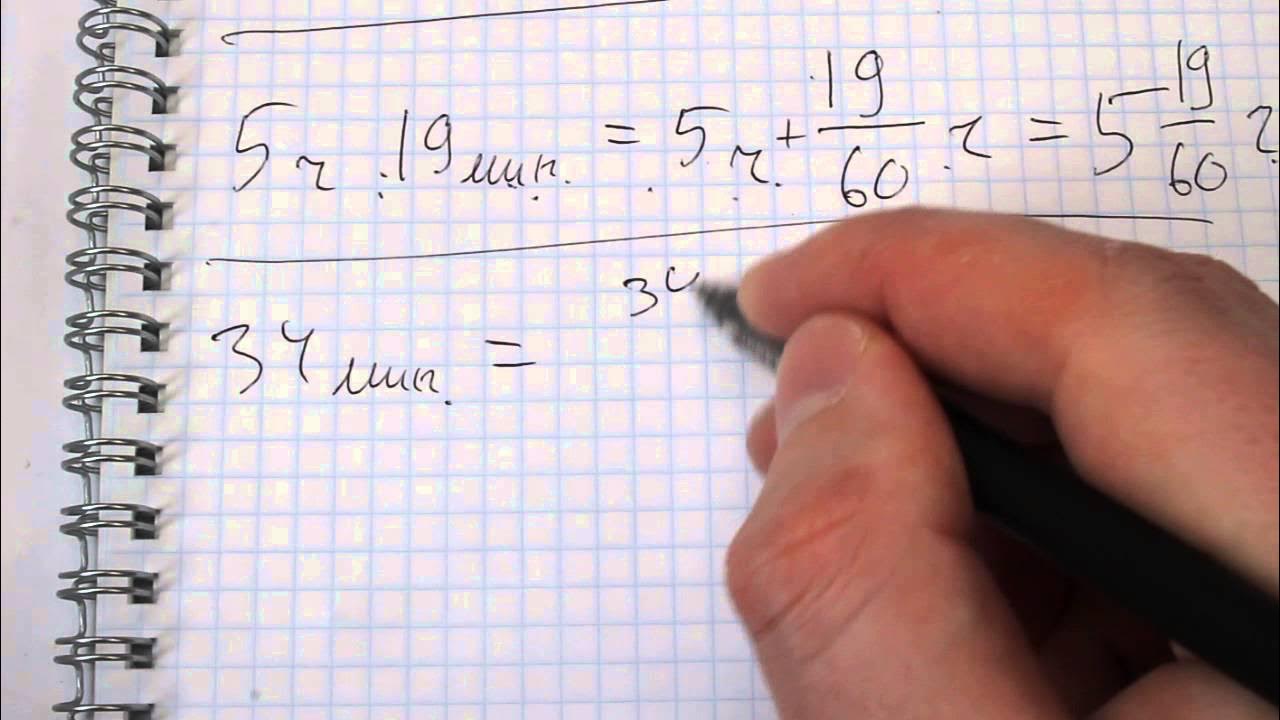 5 ч 19 мин. = 5 ч. + 19/60 ч = 5 19/60 ч
34 мин. = 34